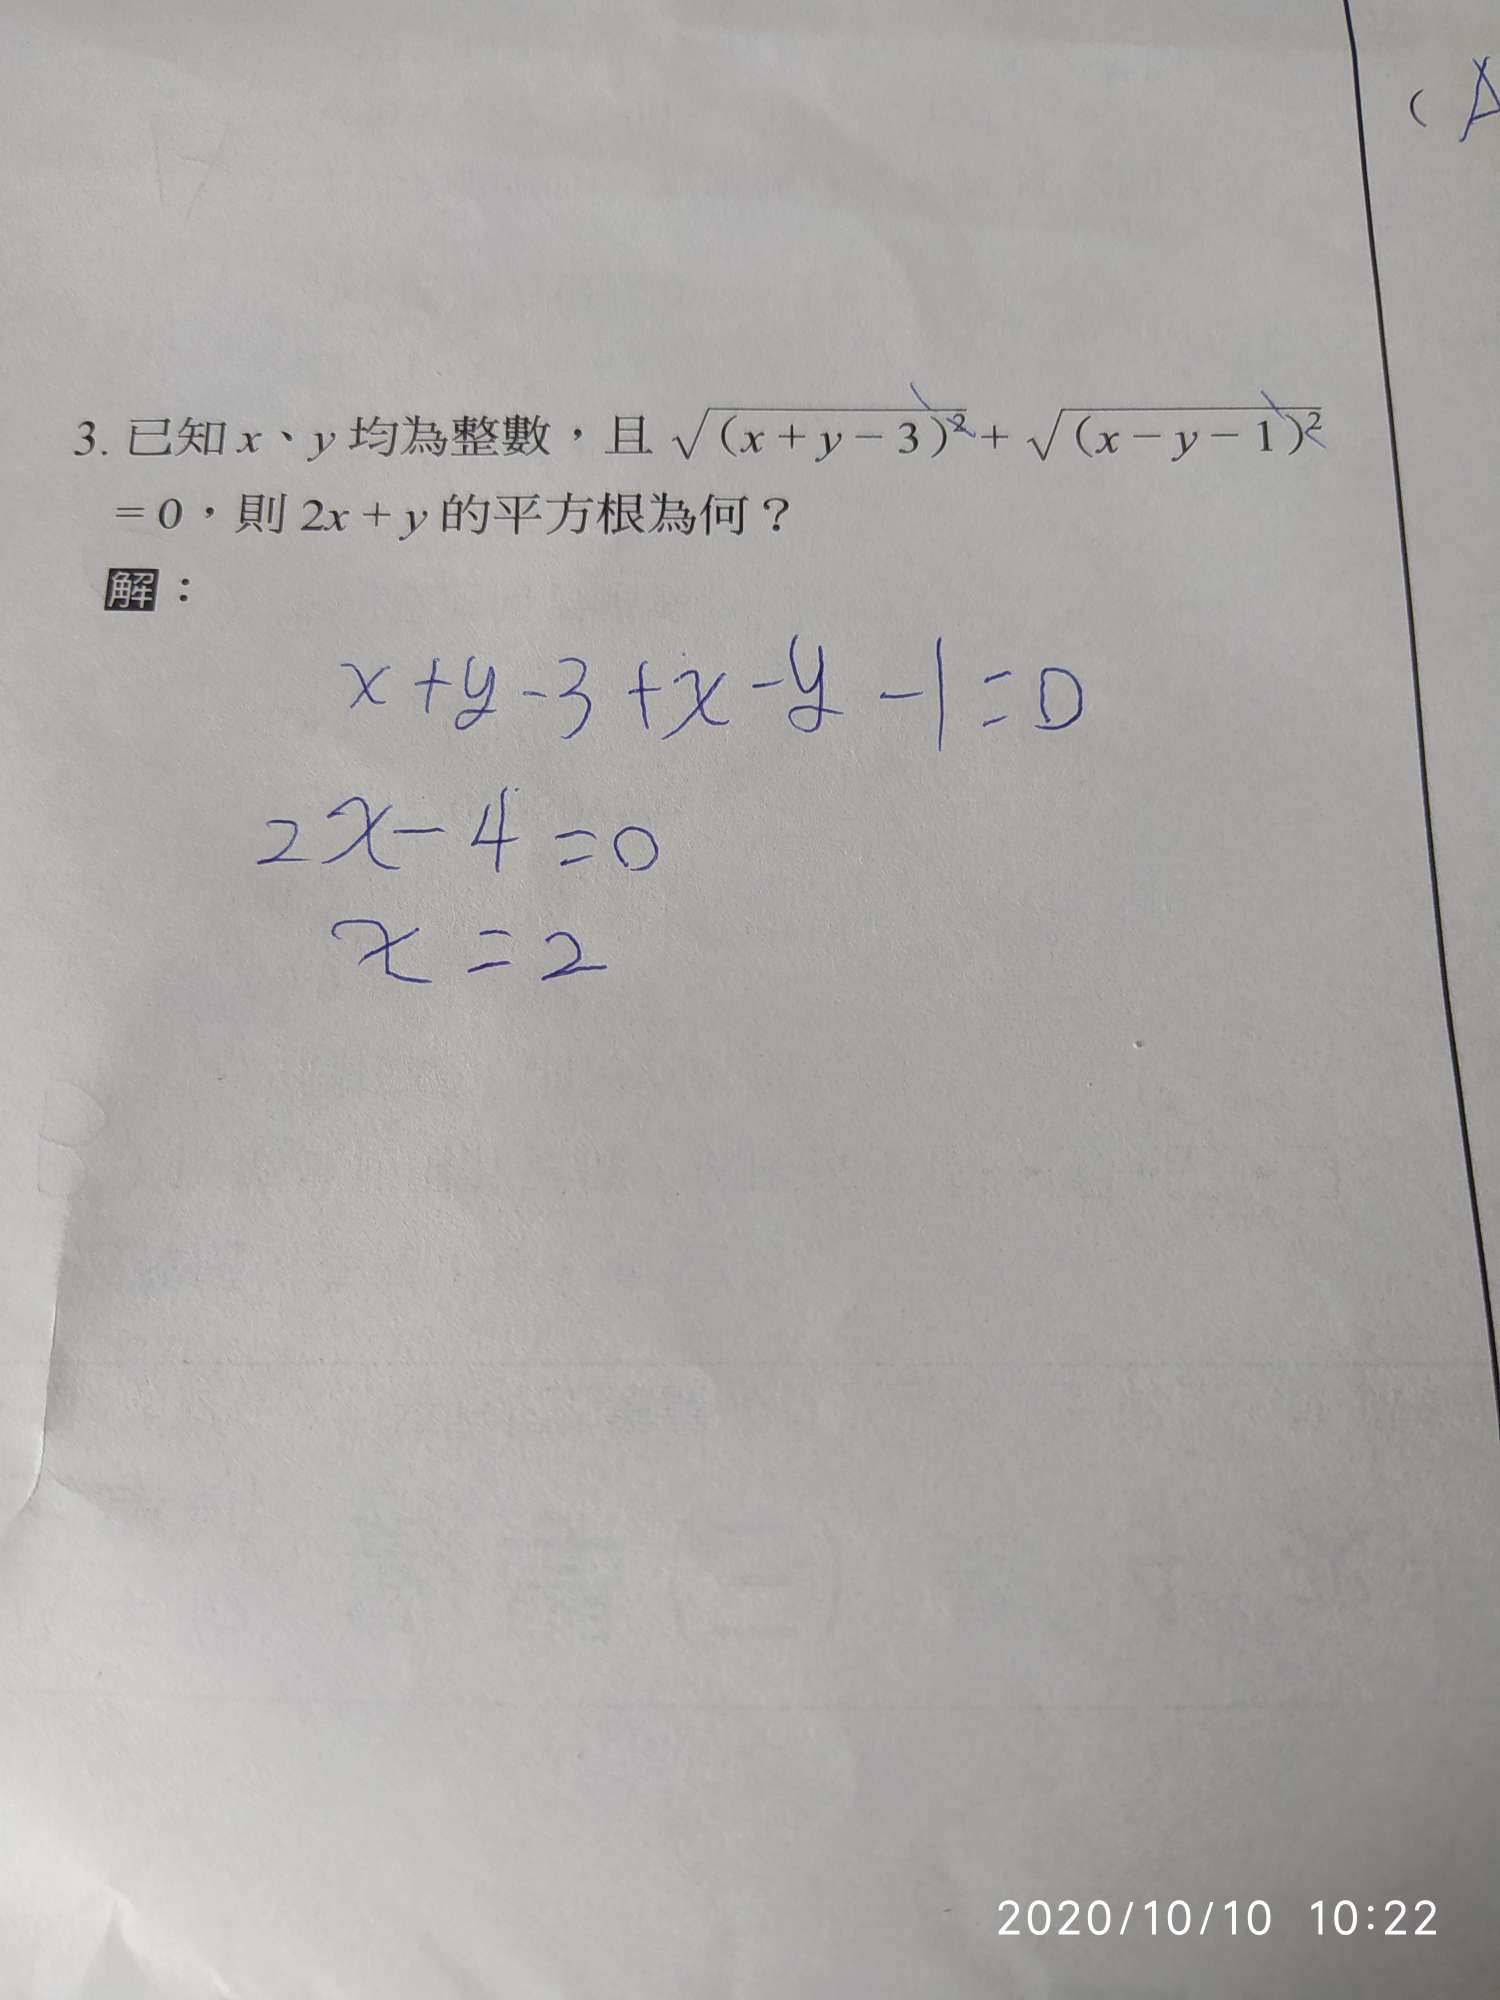 ( A
3. 已知 x、y 均為整數，且 √(x+y−3)² + √(x−y−1)²
= 0，則 2x + y 的平方根為何？
解：
x + y - 3 + x - y - 1 = 0
2x - 4 = 0
x = 2
2020/10/10 10:22